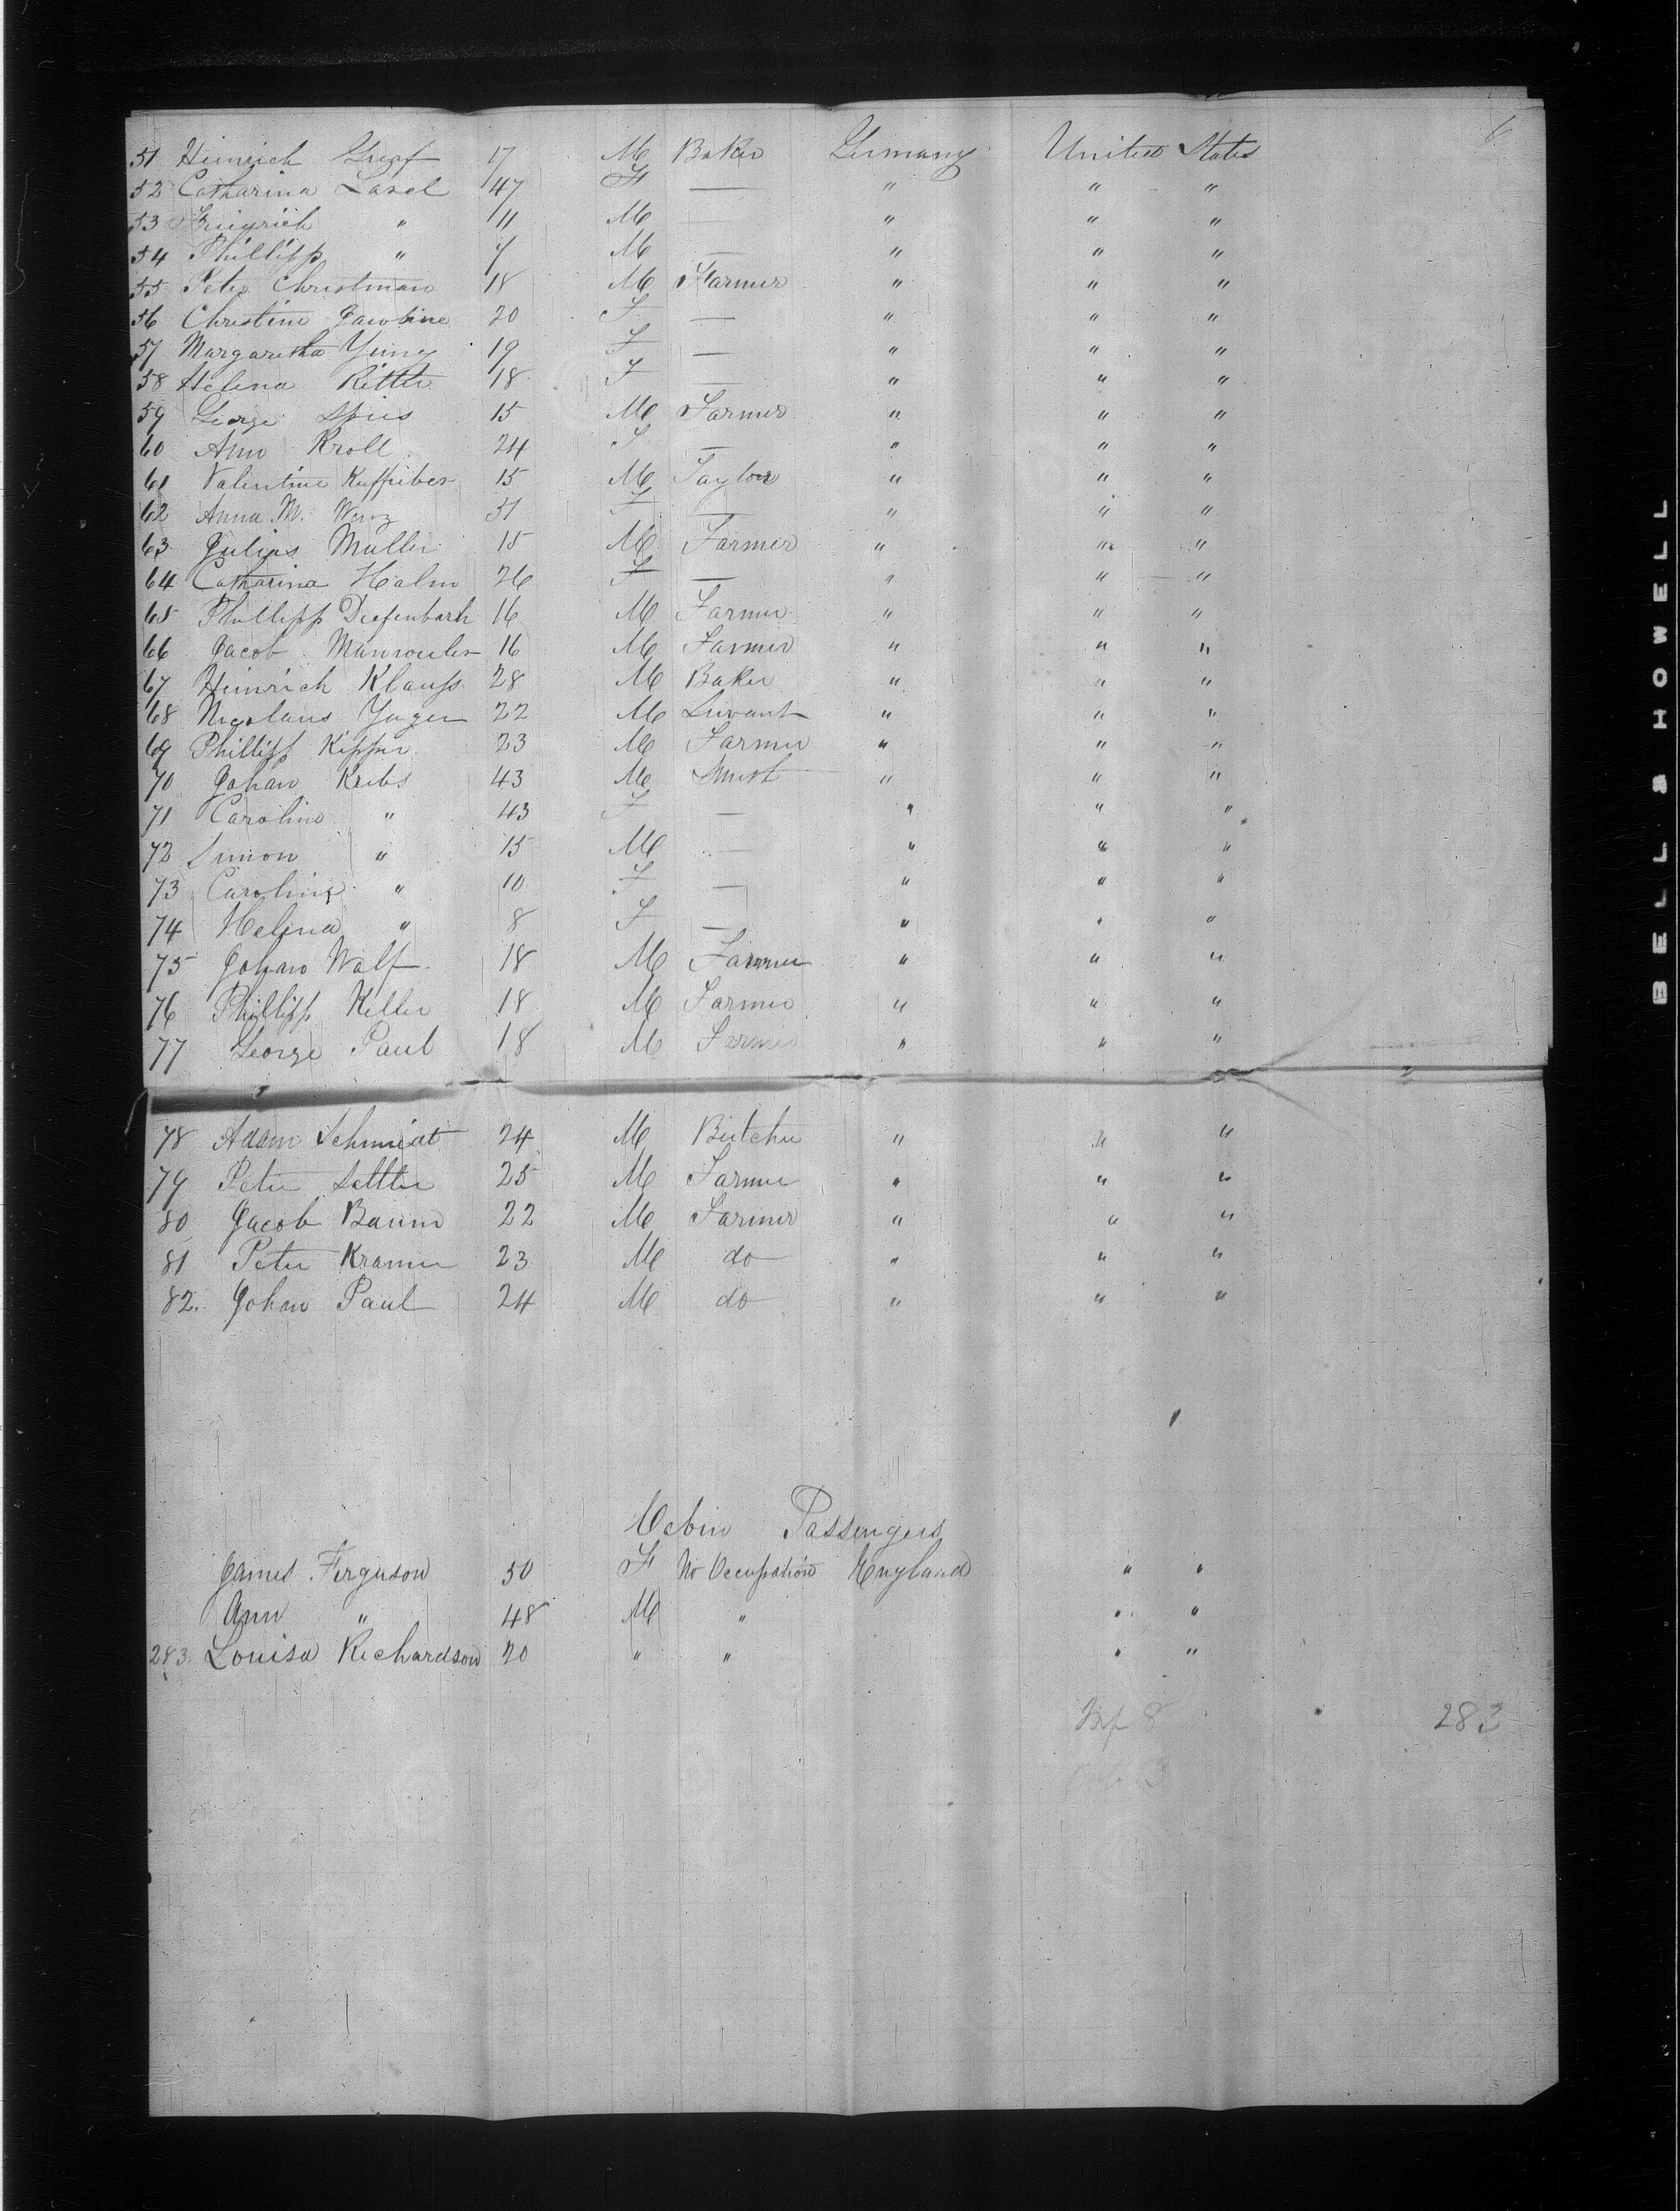 6
51 Heinrich Greaf 17 M Baker Germany United States
52 Catharina Lasel 47 F — " " "
53 " 11 M " " "
54 Phillipp " 7 M — " " "
55 Peter Christman 18 M Farmer " " "
56 Christine 20 F — " " "
57 Margaretha Yung 19 F — " " "
58 Helena Ritter 18 F — " " "
59 George Spies 15 M Farmer " " "
60 Ann Kroll 24 F — " " "
61 Valentine 15 M Taylor " " "
62 Anna M. 51 F — " " "
63 Julius Muller 15 M Farmer " " "
64 Catharina Halm 26 F — " " "
65 Phillipp Diefenbach 16 M Farmer " " "
66 Jacob 16 M Farmer " " "
67 Heinrich Klauss 28 M Baker " " "
68 Nicolaus Yager 22 M Servant " " "
69 Phillipp 23 M Farmer " " "
70 Johan Krebs 43 M " " "
71 Caroline " 43 F — " " "
72 Simon " 15 M — " " "
73 Caroline " 10 F — " " "
74 Helina " 8 F — " " "
75 Johan Wolf 18 M Farmer " " "
76 Phillipp Keller 18 M Farmer " " "
77 George Paul 18 M Farmer " " "
78 Adam Schmidt 24 M Butcher " " "
79 Peter Settler 25 M Farmer " " "
80 Jacob Baum 22 M Farmer " " "
81 Peter Kramer 23 M do " " "
82. Johan Paul 24 M do " " "
Cabin Passengers
James Ferguson 50 F No Occupation England " "
Ann " 48 M " " "
283. Louisa Richardson 20 " " " "
Inf 8 283
3
BELL & HOWELL